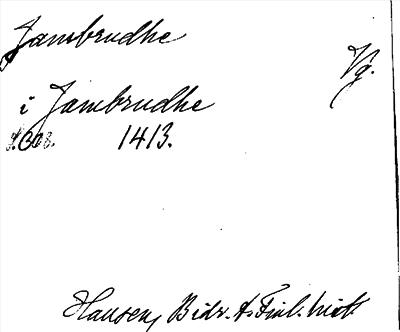 Jambrudhe
Vg.
i Jambrudhe
1413.
Hausen, Bidr. t. Finl. hist.